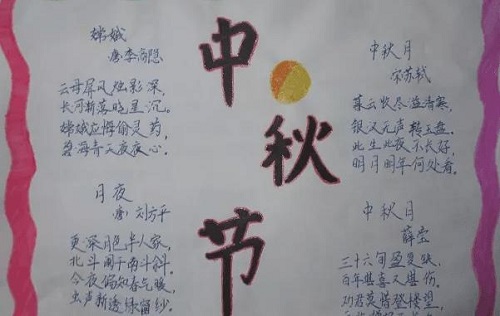 中秋节
嫦娥
唐李商隐
云母屏风烛影深,
长河渐落晓星沉。
嫦娥应悔偷灵药,
碧海青天夜夜心。
月夜
唐 刘方平
更深月色半人家,
北斗阑干南斗斜。
今夜偏知春气暖,
虫声新透绿窗纱。
中秋月
宋苏轼
暮云收尽溢清寒,
银汉无声转玉盘。
此生此夜不长好,
明月明年何处看。
中秋月
薛莹
三十六旬盈复缺,
百年堪喜又堪伤。
劝君莫惜登楼望,